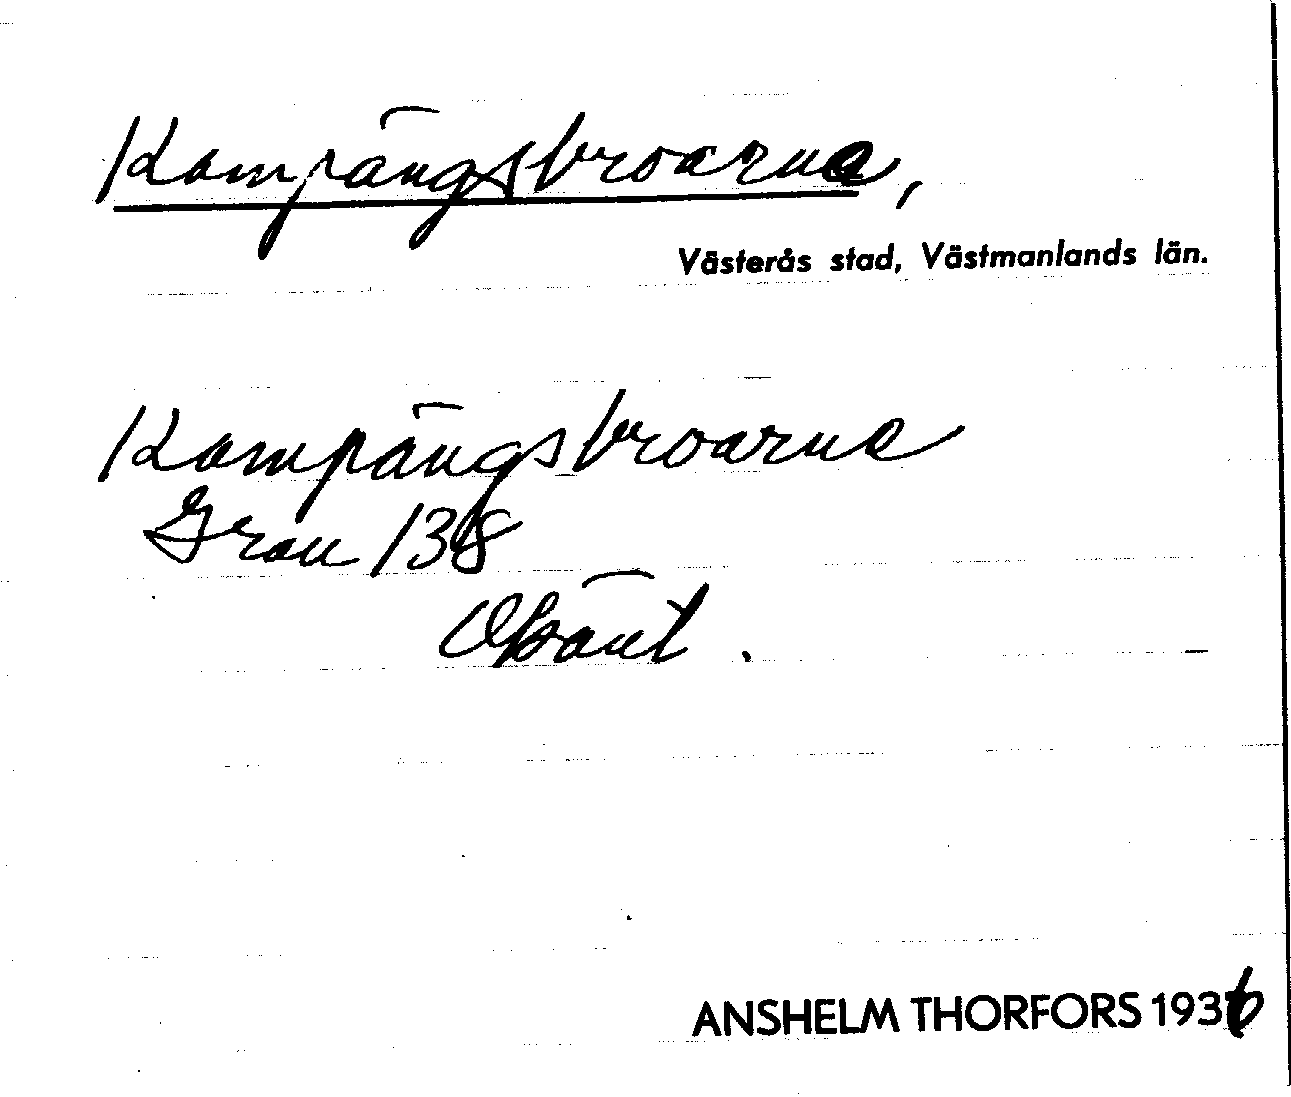 Kampängsbroarna,
Västerås stad, Västmanlands län.
Kampängsbroarna
Grau 138
Okänt.
ANSHELM THORFORS 1936